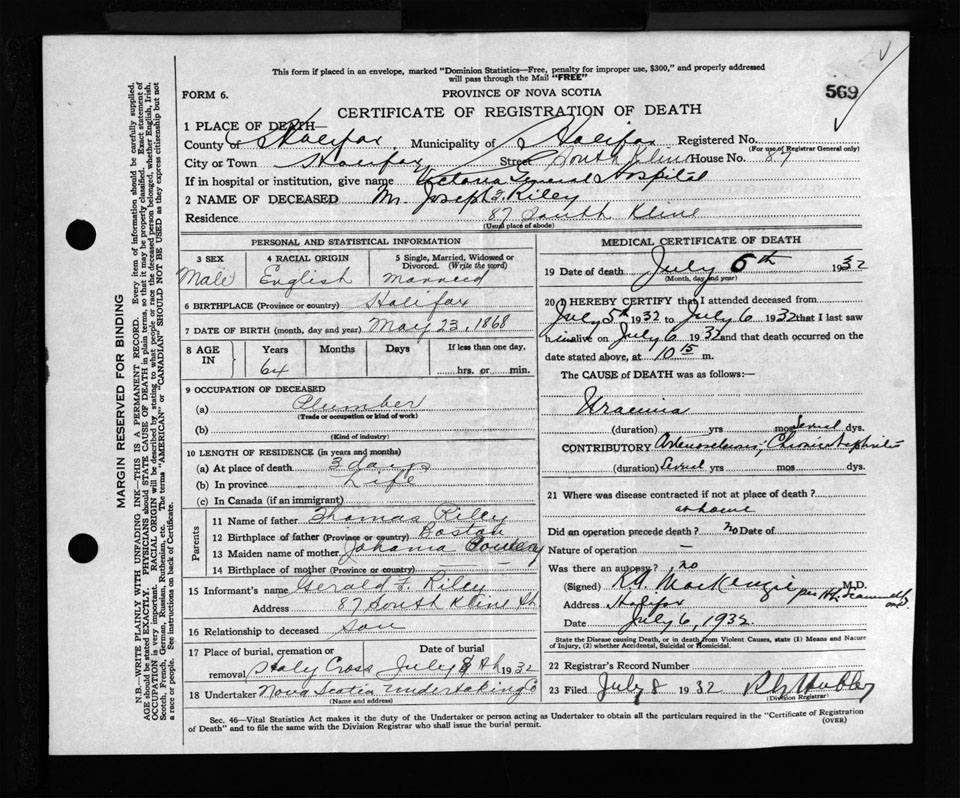 This form if placed in an envelope, marked "Dominion Statistics—Free, penalty for improper use, $300," and properly addressed
will pass through the Mail "FREE"
FORM 6.
PROVINCE OF NOVA SCOTIA
569
CERTIFICATE OF REGISTRATION OF DEATH
MARGIN RESERVED FOR BINDING
N.B.—WRITE PLAINLY WITH UNFADING INK—THIS IS A PERMANENT RECORD. Every item of information should be carefully supplied.
AGE should be stated EXACTLY. PHYSICIANS should STATE CAUSE OF DEATH in plain terms, so that it may be properly classified. Exact statement of
OCCUPATION is very important. RACIAL ORIGIN will be described by stating to what people or race the deceased person belonged, whether English, Irish,
Scotch, French, German, Russian, Ruthenian, etc. The terms "AMERICAN" or "CANADIAN" SHOULD NOT BE USED as they express citizenship but not
a race or people. See instructions on back of Certificate.
1 PLACE OF DEATH—
County of Halifax Municipality of Halifax Registered No.
(For use of Registrar General only)
City or Town Halifax Street South Kline House No. 87
If in hospital or institution, give name Victoria General Hospital
2 NAME OF DECEASED Mr. Joseph E. Riley
Residence 87 South Kline
(Usual place of abode)
PERSONAL AND STATISTICAL INFORMATION
3 SEX 4 RACIAL ORIGIN 5 Single, Married, Widowed or
Divorced. (Write the word)
Male English Married
6 BIRTHPLACE (Province or country) Halifax
7 DATE OF BIRTH (month, day and year) May 23, 1868
8 AGE IN Years Months Days If less than one day.
64 hrs. or min.
9 OCCUPATION OF DECEASED
(a) Plumber
(Trade or occupation or kind of work)
(b)
(Kind of industry)
10 LENGTH OF RESIDENCE (in years and months)
(a) At place of death 3 days
(b) In province Life
(c) In Canada (if an immigrant)
Parents
11 Name of father Thomas Riley
12 Birthplace of father (Province or country) Boston
13 Maiden name of mother Johanna
14 Birthplace of mother (Province or country) —
15 Informant's name Gerald F. Riley
Address 87 South Kline St
16 Relationship to deceased Son
17 Place of burial, cremation or Date of burial
removal Holy Cross July 8th 1932
18 Undertaker Nova Scotia Undertaking Co
(Name and address)
MEDICAL CERTIFICATE OF DEATH
19 Date of death July 6th 1932
(Month, day and year)
20 I HEREBY CERTIFY that I attended deceased from
July 5th 1932 to July 6 1932 that I last saw
him alive on July 6 1932 and that death occurred on the
date stated above, at 10 15 m.
The CAUSE of DEATH was as follows:—
Uraemia
(duration) yrs mos Several dys.
CONTRIBUTORY Arteriosclerosis; Chronic Nephritis
(duration) Several yrs mos dys.
21 Where was disease contracted if not at place of death?
at home
Did an operation precede death? no Date of
Nature of operation —
Was there an autopsy? no
(Signed) K.A. MacKenzie M.D.
Address Halifax
Date July 6, 1932
State the Disease causing Death, or in death from Violent Causes, state (1) Means and Nature
of Injury, (2) whether Accidental, Suicidal or Homicidal.
22 Registrar's Record Number
23 Filed July 8 1932
(Division Registrar)
Sec. 46—Vital Statistics Act makes it the duty of the Undertaker or person acting as Undertaker to obtain all the particulars required in the "Certificate of Registration
of Death" and to file the same with the Division Registrar who shall issue the burial permit. (OVER)